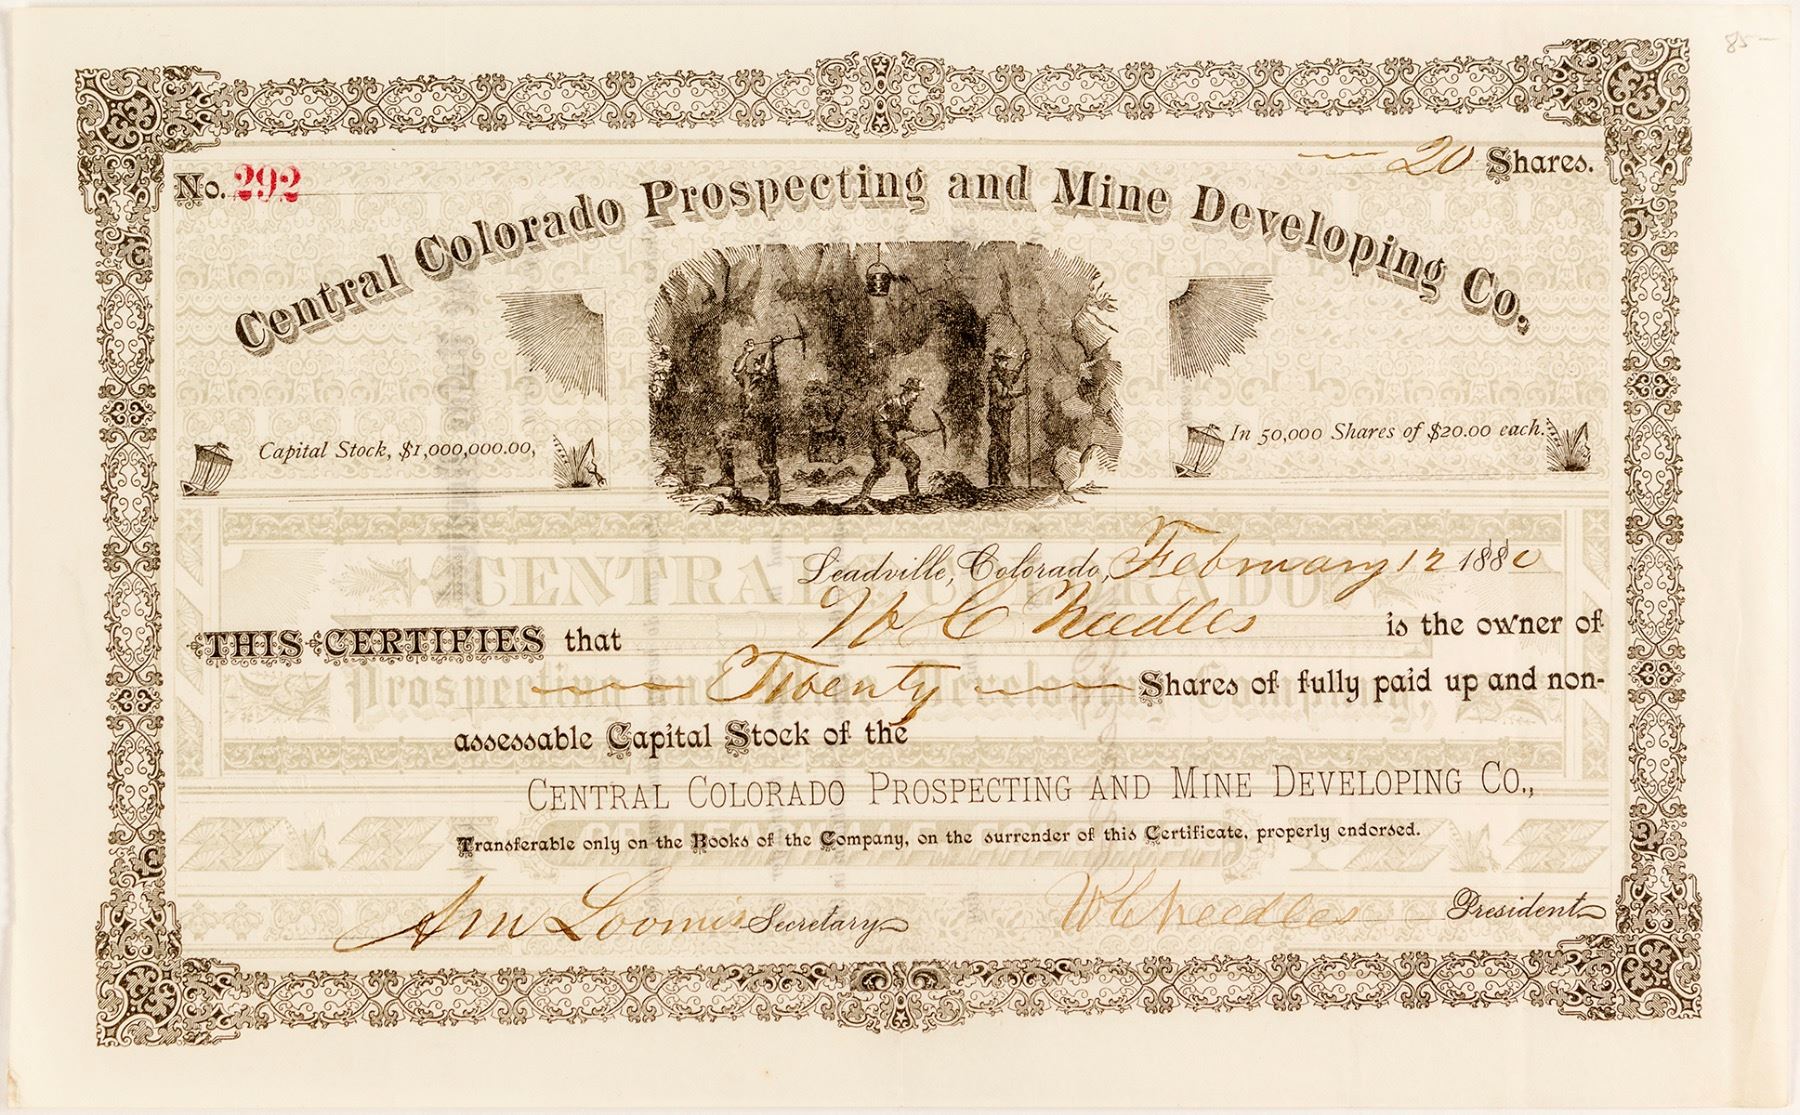 85—
No. 292
20 Shares.
Central Colorado Prospecting and Mine Developing Co.
Capital Stock, $1,000,000.00,
In 50,000 Shares of $20.00 each.
CENTRAL COLORADO
Prospecting and Mine Developing Company,
Leadville, Colorado, February 12 1880
THIS CERTIFIES that W C Needles is the owner of
Twenty Shares of fully paid up and non-
assessable Capital Stock of the
CENTRAL COLORADO PROSPECTING AND MINE DEVELOPING CO.,
Transferable only on the Books of the Company, on the surrender of this Certificate, properly endorsed.
Loomis Secretary
W C Needles President